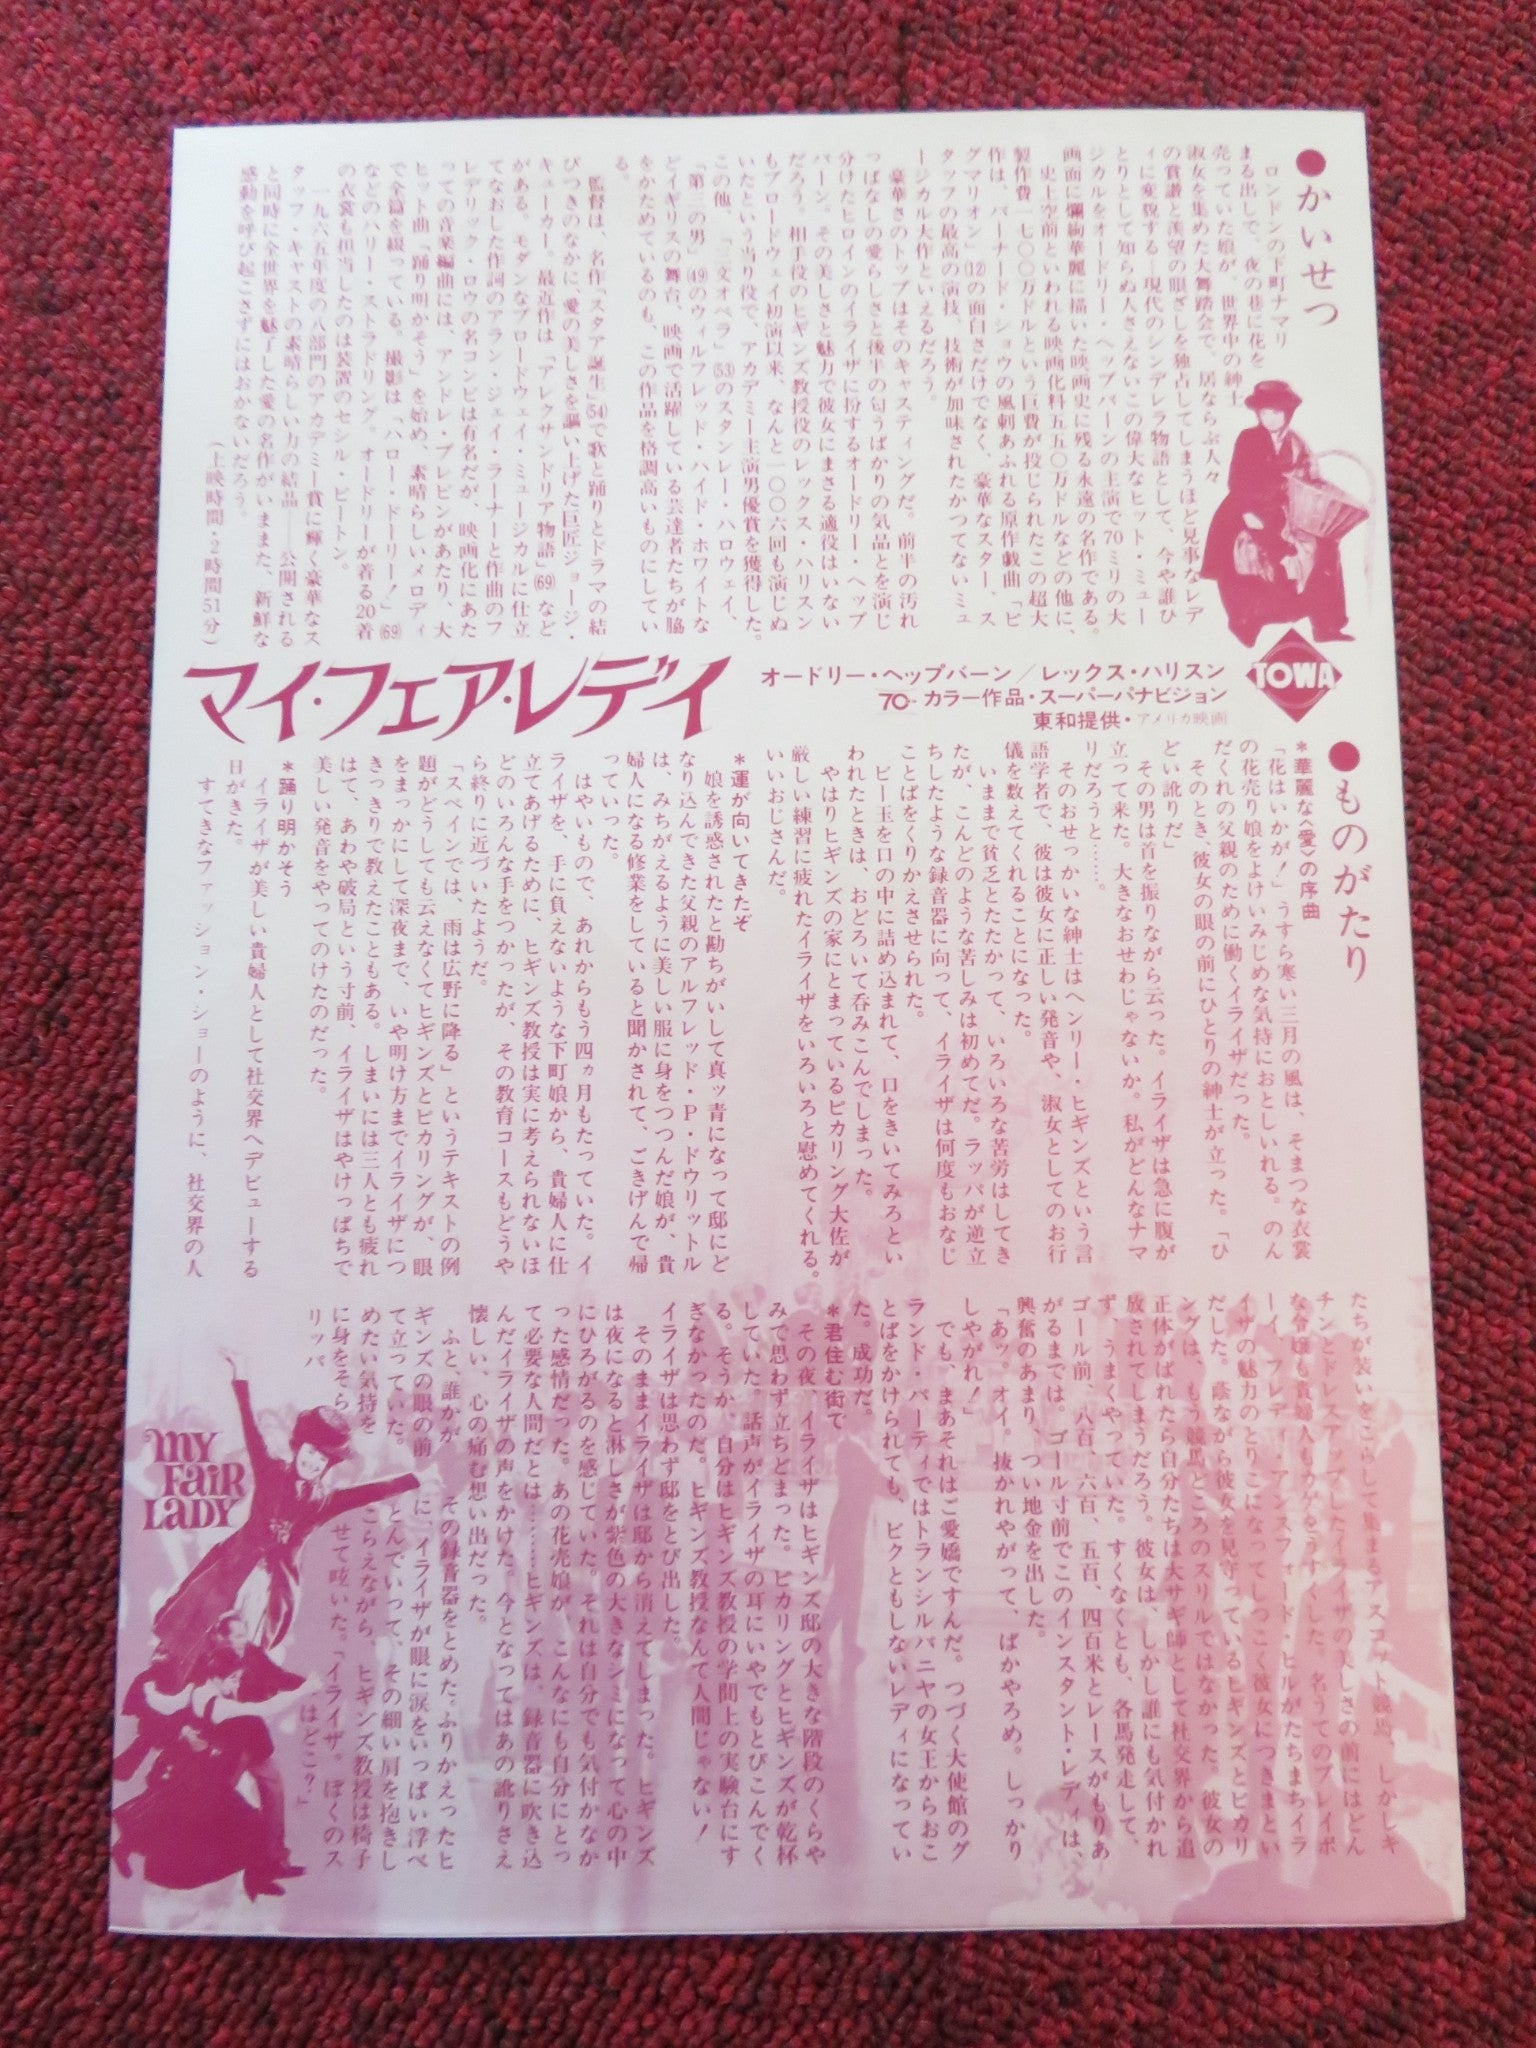 ●かいせつ
ロンドンの下町ナマリ
まる出しで、夜の巷に花を
売っていた娘が、世界中の紳士
淑女を集めた大舞踏会で、居ならぶ人々
の賞讃と羨望の眼ざしを独占してしまうほど見事なレデ
ィに変貌する―現代のシンデレラ物語として、今や誰ひ
とりとして知らぬ人さえないこの偉大なヒット・ミュー
ジカルをオードリー・ヘップバーンの主演で70ミリの大
画面に爛絢華麗に描いた映画史に残る永遠の名作である。
史上空前といわれる映画化料五五〇万ドルなどの他に、
製作費一七〇〇万ドルという巨費が投じられたこの超大
作は、バーナード・ショウの風刺あふれる原作戯曲「ピ
グマリオン」(12)の面白さだけでなく、豪華なスター、ス
タッフの最高の演技、技術が加味されたかつてないミュ
ージカル大作といえるだろう。
豪華さのトップはそのキャスティングだ。前半の汚れ
っぱなしの愛らしさと後半の匂うばかりの気品とを演じ
分けたヒロインのイライザに扮するオードリー・ヘップ
バーン。その美しさと魅力で彼女にまさる適役はいない
だろう。相手役のヒギンズ教授役のレックス・ハリスン
もブロードウェイ初演以来、なんと一〇〇六回も演じぬ
いたという当り役で、アカデミー主演男優賞を獲得した。
この他、「三文オペラ」(53)のスタンレー・ハロウェイ、
「第三の男」(49)のウィルフレッド・ハイド・ホワイトな
どイギリスの舞台、映画で活躍している芸達者たちが脇
をかためているのも、この作品を格調高いものにしてい
る。
監督は、名作「スタア誕生」(54)で歌と踊りとドラマの結
びつきのなかに、愛の美しさを謳い上げた巨匠ジョージ・
キューカー。最近作は「アレクサンドリア物語」(69)など
がある。モダンなブロードウェイ・ミュージカルに仕立
てなおした作詞のアラン・ジェイ・ラーナーと作曲のフ
レデリック・ロウの名コンビは有名だが、映画化にあた
っての音楽編曲には、アンドレ・プレビンがあたり、大
ヒット曲「踊り明かそう」を始め、素晴らしいメロディ
で全篇を綴っている。撮影は「ハロー・ドーリー！」(69)
などのハリー・ストラドリング。オードリーが着る20着
の衣裳も担当したのは装置のセシル・ビートン。
一九六五年度の八部門のアカデミー賞に輝く豪華なス
タッフ・キャストの素晴らしい力の結晶――公開される
と同時に全世界を魅了した愛の名作がいままた、新鮮な
感動を呼び起こさずにはおかないだろう。
（上映時間・2時間51分）
TOWA
オードリー・ヘップバーン／レックス・ハリスン
70 カラー作品・スーパーパナビジョン
東和提供・アメリカ映画
マイ・フェア・レディ
●ものがたり
＊華麗な〈愛〉の序曲
「花はいかが！」うすら寒い三月の風は、そまつな衣裳
の花売り娘をよけいみじめな気持におとしいれる。のん
だくれの父親のために働くイライザだった。
そのとき、彼女の眼の前にひとりの紳士が立った。「ひ
どい訛りだ」
その男は首を振りながら云った。イライザは急に腹が
立って来た。大きなおせわじゃないか。私がどんなナマ
リだろうと……。
そのおせっかいな紳士はヘンリー・ヒギンズという言
語学者で、彼は彼女に正しい発音や、淑女としてのお行
儀を数えてくれることになった。
いままで貧乏とたたかって、いろいろな苦労はしてき
たが、こんどのような苦しみは初めてだ。ラッパが逆立
ちしたような録音器に向って、イライザは何度もおなじ
ことばをくりかえさせられた。
ビー玉を口の中に詰め込まれて、口をきいてみろとい
われたときは、おどろいて呑みこんでしまった。
やはりヒギンズの家にとまっているピカリング大佐が
厳しい練習に疲れたイライザをいろいろと慰めてくれる。
いいおじさんだ。
＊運が向いてきたぞ
娘を誘惑されたと勘ちがいして真ッ青になって邸にど
なり込んできた父親のアルフレッド・P・ドウリットル
は、みちがえるように美しい服に身をつつんだ娘が、貴
婦人になる修業をしていると聞かされて、ごきげんで帰
っていった。
はやいもので、あれからもう四ヵ月もたっていた。イ
ライザを、手に負えないような下町娘から、貴婦人に仕
立てあげるために、ヒギンズ教授は実に考えられないほ
どのいろんな手をつかったが、その教育コースもどうや
ら終りに近づいたようだ。
「スペインでは、雨は広野に降る」というテキストの例
題がどうしても云えなくてヒギンズとピカリングが、眼
をまっかにして深夜まで、いや明け方までイライザにつ
きっきりで教えたこともある。しまいには三人とも疲れ
はて、あわや破局という寸前、イライザはやけっぱちで
美しい発音をやってのけたのだった。
＊踊り明かそう
イライザが美しい貴婦人として社交界へデビューする
日がきた。
すてきなファッション・ショーのように、社交界の人
たちが装いをこらして集まるアスコット競馬、しかしキ
チンとドレスアップしたイライザの美しさの前にはどん
な令嬢も貴婦人もカゲをうすくした。名うてのプレイボ
ーイ、フレディ・アンスフォード・ヒルがたちまちイラ
イザの魅力のとりこになってしつこく彼女につきまとい
だした。蔭ながら彼女を見守っているヒギンズとピカリ
ングは、もう競馬どころのスリルではなかった。彼女の
正体がばれたら自分たちは大サギ師として社交界から追
放されてしまうだろう。彼女は、しかし誰にも気付かれ
ず、うまくやっていた。すくなくとも、各馬発走して、
ゴール前、八百、六百、五百、四百米とレースがもりあ
がるまでは。ゴール寸前でこのインスタント・レディは、
興奮のあまり、つい地金を出した。
「あッ。オイ。抜かれやがって、ばかやろめ。しっかり
しやがれ！」
でも、まあそれはご愛嬌ですんだ。つづく大使館のグ
ランド・パーティではトランシルバニヤの女王からおこ
とばをかけられても、ビクともしないレディになってい
た。成功だ。
＊君住む街で
その夜、イライザはヒギンズ邸の大きな階段のくらや
みで思わず立ちどまった。ピカリングとヒギンズが乾杯
していた。話声がイライザの耳にいやでもとびこんでく
る。そうか、自分はヒギンズ教授の学問上の実験台にす
ぎなかったのだ。ヒギンズ教授なんて人間じゃない！
イライザは思わず邸をとび出した。
そのままイライザは邸から消えてしまった。ヒギンズ
は夜になると淋しさが紫色の大きなシミになって心の中
にひろがるのを感じていた。それは自分でも気付かなか
った感情だった。あの花売娘が、こんなにも自分にとっ
て必要な人間だとは……ヒギンズは、録音器に吹き込
んだイライザの声をかけた。今となってはあの訛りさえ
懐しい、心の痛む想い出だった。
ふと、誰かが その録音器をとめた。ふりかえったヒ
ギンズの眼の前 に、イライザが眼に涙をいっぱい浮べ
て立っていた。 とんでいって、その細い肩を抱きし
めたい気持を こらえながら、ヒギンズ教授は椅子
に身をそら せて呟いた。「イライザ。ぼくのス
リッパ はどこ？」
MY
FAIR
LADY